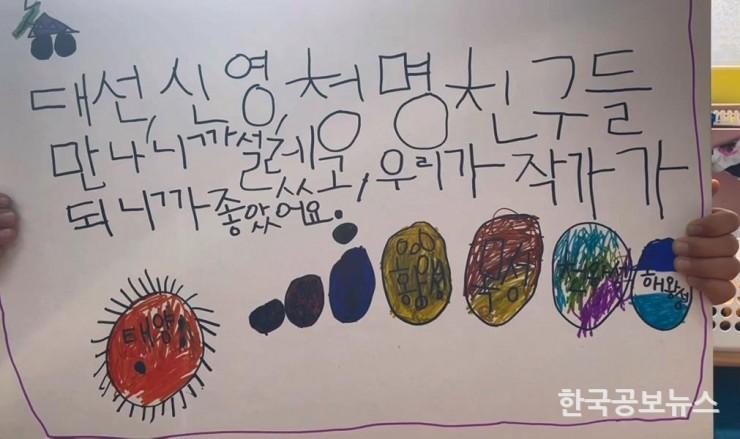 대선,신영,청명친구들
만나니까설레였고,우리가 작가가
되니까좋았어요.
태양
천왕성
해왕성
한국공보뉴스